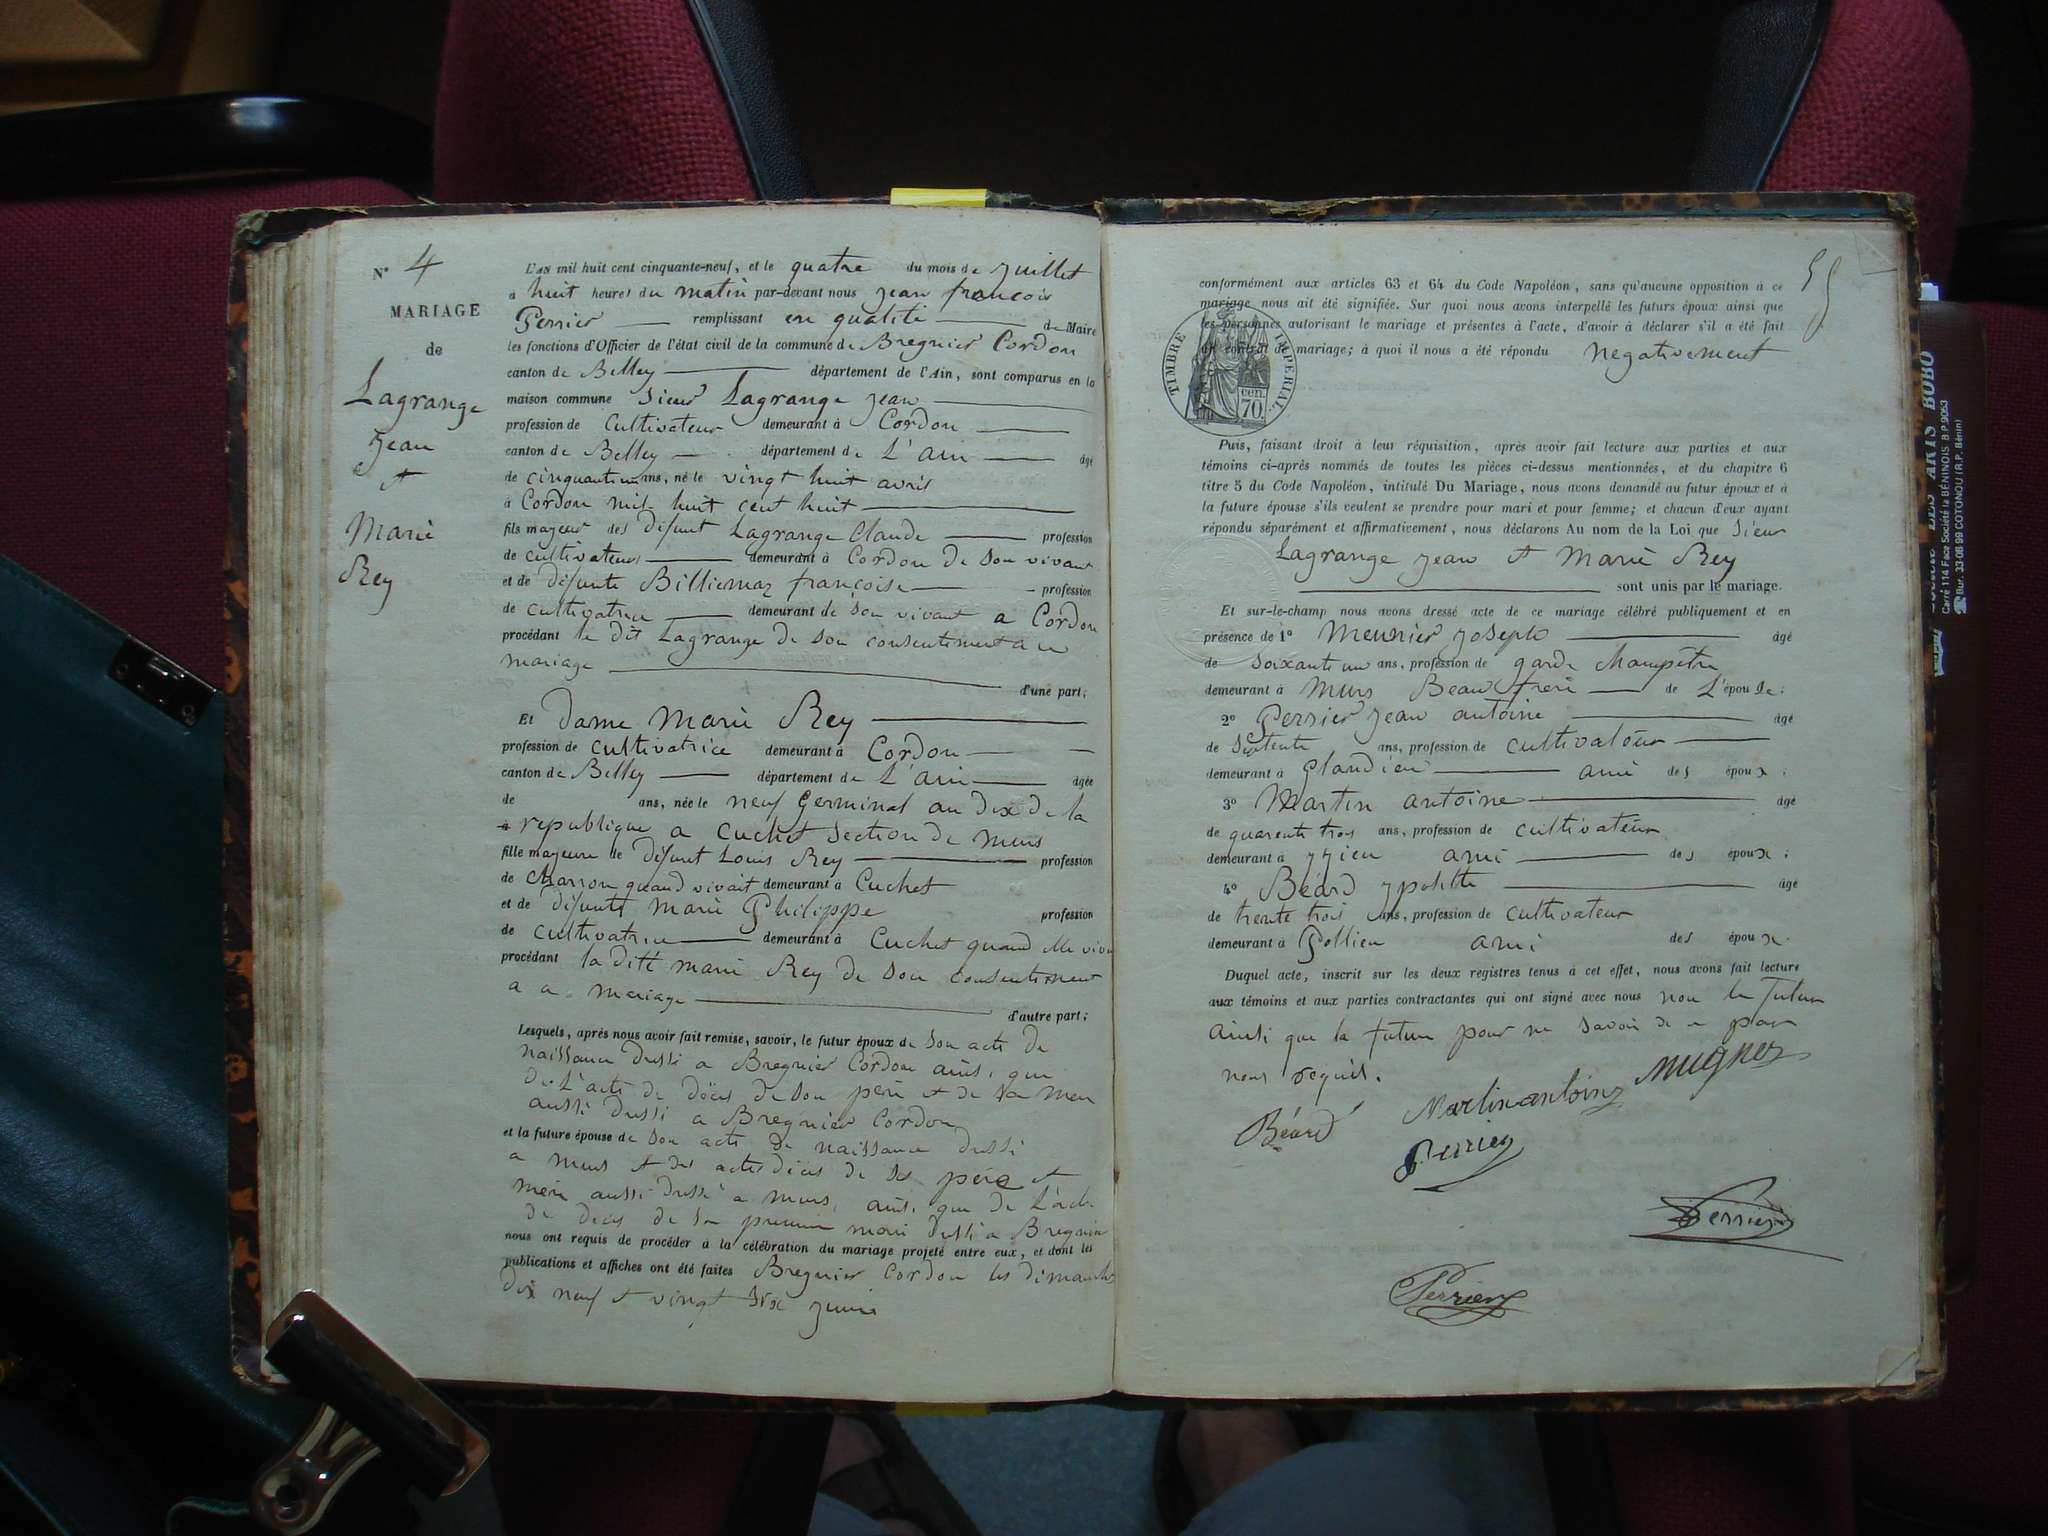 N° 4
MARIAGE
de
Lagrange
Jean
et
Marie
Rey
L'AN mil huit cent cinquante-neuf, et le quatre du mois de Juillet
à huit heures du matin par-devant nous Jean françois
Perrier remplissant en qualité de Maire
les fonctions d'Officier de l'état civil de la commune de Bregnier Cordon
canton de Belley département de l'Ain, sont comparus en la
maison commune Sieur Lagrange Jean
profession de Cultivateur demeurant à Cordon
canton de Belley département de L'ain âgé
de cinquante un ans, né le vingt huit avril
à Cordon mil huit cent huit
fils majeur des défunt Lagrange Claude profession
de cultivateur demeurant à Cordon de son vivant
et de défunte Billiemaz françoise profession
de cultivatrice demeurant de son vivant a Cordon
procédant le dit Lagrange de son consentement a ce
mariage
d'une part;
Et Dame Marie Rey
profession de cultivatrice demeurant à Cordon
canton de Belley département de L'ain âgée
de ans, née le neuf Germinal an dix de la
à republique a Cuchet Section de Murs
fille majeure de défunt Louis Rey profession
de charron quand vivait demeurant à Cuchet
et de défunte Marie Philippe profession
de cultivatrice demeurant à Cuchet quand elle vivai
procédant la dite marie Rey de son consentement
a ce mariage
d'autre part;
Lesquels, après nous avoir fait remise, savoir, le futur époux de son acte de
naissance dressé a Bregnier Cordon ainsi que
de L'acte de décès de son père et de sa mère
aussi dressé a Bregnier Cordon
et la future épouse de son acte de naissance dressé
a murs et des actes décès de ses père et
mère aussi dressé a murs, ainsi que de L'acte
de décès de son premier mari dressé a Bregnier
nous ont requis de procéder à la célébration du mariage projeté entre eux, et dont les
publications et affiches ont été faites Bregnier Cordon les dimanches
dix neuf et vingt six juin
55
conformément aux articles 63 et 64 du Code Napoléon, sans qu'aucune opposition à ce
mariage nous ait été signifiée. Sur quoi nous avons interpellé les futurs époux ainsi que
les personnes autorisant le mariage et présentes à l'acte, d'avoir à déclarer s'il a été fait
un contrat de mariage; à quoi il nous a été répondu negativement
TIMBRE IMPERIAL.
cen.
70.
Puis, faisant droit à leur réquisition, après avoir fait lecture aux parties et aux
témoins ci-après nommés de toutes les pièces ci-dessus mentionnées, et du chapitre 6
titre 5 du Code Napoléon, intitulé Du Mariage, nous avons demandé au futur époux et à
la future épouse s'ils veulent se prendre pour mari et pour femme; et chacun d'eux ayant
répondu séparément et affirmativement, nous déclarons Au nom de la Loi que Sieur
Lagrange Jean et Marie Rey
sont unis par le mariage.
Et sur-le-champ nous avons dressé acte de ce mariage célébré publiquement et en
présence de 1° Meunier Joseph âgé
de soixante un ans, profession de garde Champêtre
demeurant à Murs Beau frere de L'épouse;
2° Perrier Jean antoine âgé
de ans, profession de cultivateur
demeurant à Glandieu ami des époux;
3° Martin antoine âgé
de quarente trois ans, profession de cultivateur
demeurant à yzieu ami des époux;
4° Béard ypolitte âgé
de trente trois ans, profession de cultivateur
demeurant à Pollieu ami des époux.
Duquel acte, inscrit sur les deux registres tenus à cet effet, nous avons fait lecture
aux témoins et aux parties contractantes qui ont signé avec nous non le futur
ainsi que la future pour ne savoir de ce par
nous requis.
Béard Martin antoine Mugner
Perrier
Perrier
Perrier
LES ARTS BOBO
Carré 114 Face Société la BÉNINOIS B.P. 9063
Bur. 33-06 99 COTONOU (R.P. Bénin)